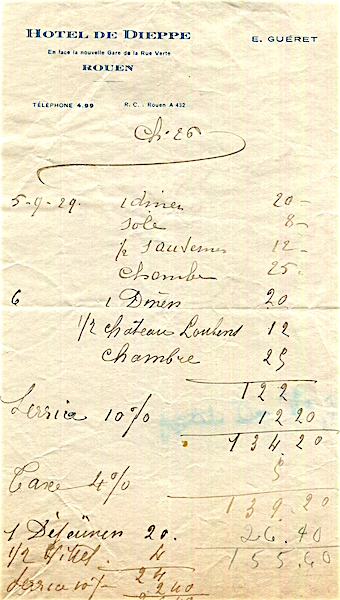 HOTEL DE DIEPPE
E. GUÉRET
En face la nouvelle Gare de la Rue Verte
ROUEN
TÉLÉPHONE 4.99 R. C. Rouen A 432
Ch. 26
5-9-29. 1 diner 20 -
sole 8 -
1/2 Sauternes 12 -
chambre 25 -
6 1 Diner 20
1/2 château Loubens 12
chambre 25
122
Service 10% 12 20
134.20
Taxe 4% 5
139.20
1 Déjeuner 20. 26.40
1/2 Vittel. 4 155.60
24
Service 10% 2 40